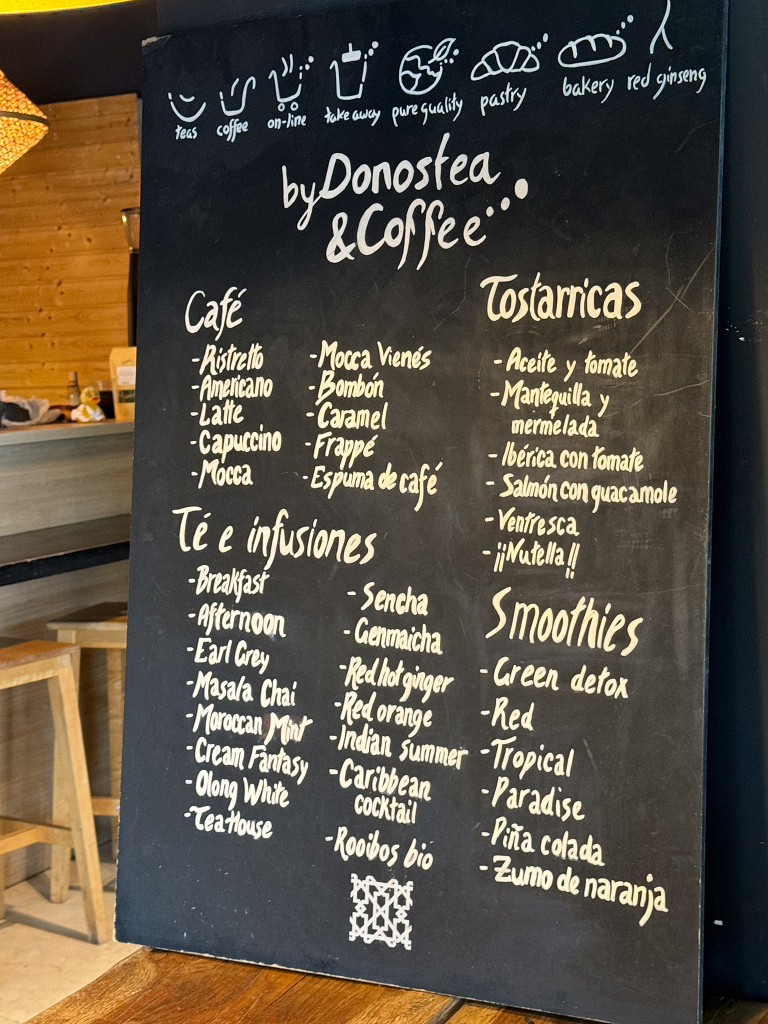 teas
coffee
on-line
take away
pure quality
pastry
bakery
red ginseng
by Donostea
& Coffee...
Café
-Ristretto
-Americano
-Latte
-Capuccino
-Mocca
-Mocca Vienés
-Bombón
-Caramel
-Frappé
-Espuma de café
Té e infusiones
-Breakfast
-Afternoon
-Earl Grey
-Masala Chai
-Moroccan Mint
-Cream Fantasy
-Olong White
-Tea House
-Sencha
-Genmaicha
-Red hot ginger
-Red orange
-Indian summer
-Caribbean
cocktail
-Rooibos bio
Tostarricas
-Aceite y tomate
-Mantequilla y
mermelada
-Ibérica con tomate
-Salmón con guacamole
-Ventresca
-¡¡Nutella!!
Smoothies
-Green detox
-Red
-Tropical
-Paradise
-Piña colada
-Zumo de naranja